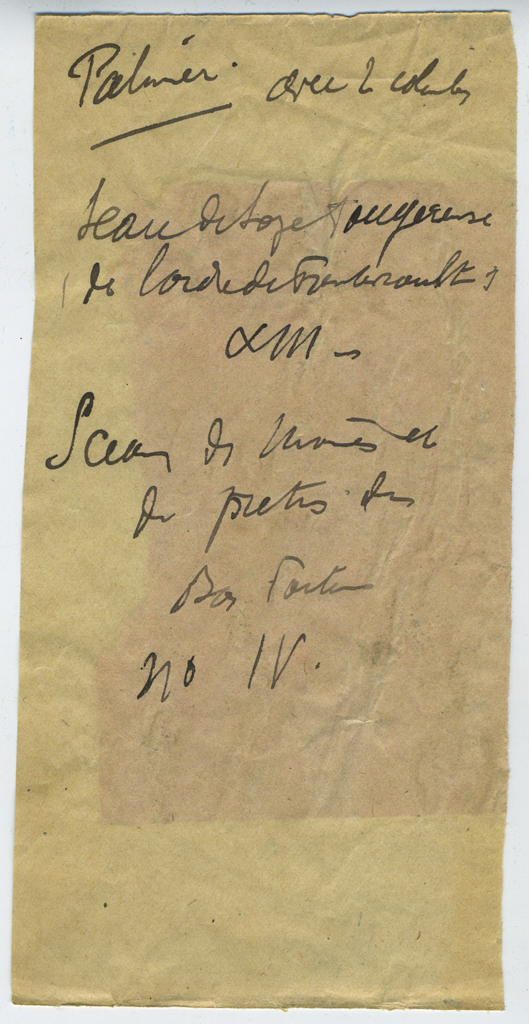 Palmier. avec 2 colombes
Sceau de Loge Fougereuse
(de l'ordre de Fontevrault)
XIII
Sceaux de moines et
de pretres du
Bas Poitou
no IV.